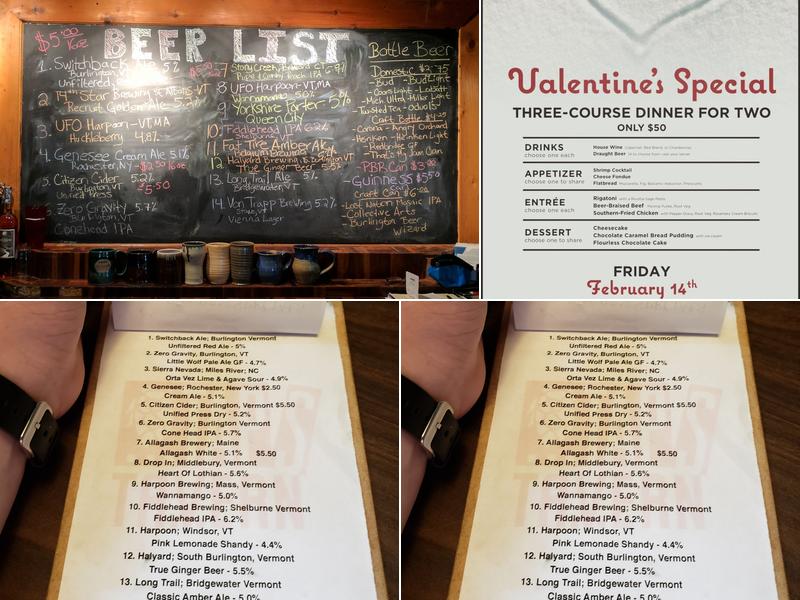 $5.00
16oz
BEER LIST
1. Switchback Ale 5%
Burlington, VT
Unfiltered
2. 14th Star Brewing St. Albans VT
Recruit Golden Ale
3. UFO Harpoon - VT, MA
Huckleberry 4.8%
4. Genesee Cream Ale 5.1%
Rochester, NY - $2.50 16oz
5. Citizen Cider 5.2%
Burlington, VT
Unified Press
$5.50
Zero Gravity 5.7%
Burlington, VT
Conehead IPA
7
Stony Creek
8 UFO Harpoon - VT, MA
Wannamango 5.0%
9 Yorkshire Porter - 5%
Queen City
10. Fiddlehead IPA 6.2%
Shelburne, VT
11. Fat Tire Amber Ale
12
Halyard Brewing S. Burlington VT
True Ginger Beer - 5.5%
13. Long Trail Ale 5%
Bridgewater, VT
14. Von Trapp Brewing 5.2%
Stowe, VT
Vienna Lager
Bottle Beer
Domestic $2.75
-Bud -Bud Light
-Coors Light -Labatt
-Mich Ultra -Miller Light
-Twisted Tea -Odouls
Craft Bottle $4.00
-Corona -Angry Orchard
-Heineken -Heineken Light
-Redbridge GF
-That's My Jam
PBR Can $3.00
Guinness $5.50
Craft Can $6.00
-Lost Nation Mosaic IPA
-Collective Arts
-Burlington Beer
Wizard
Valentine's Special
THREE-COURSE DINNER FOR TWO
ONLY $50
DRINKS
choose one each
House Wine
Draught Beer
APPETIZER
choose one to share
Shrimp Cocktail
Cheese Fondue
Flatbread
ENTRÉE
choose one each
Rigatoni
Beer-Braised Beef
Southern-Fried Chicken
DESSERT
choose one to share
Cheesecake
Chocolate Caramel Bread Pudding
Flourless Chocolate Cake
FRIDAY
February 14th
1. Switchback Ale; Burlington Vermont
Unfiltered Red Ale - 5%
2. Zero Gravity, Burlington, VT
Little Wolf Pale Ale GF - 4.7%
3. Sierra Nevada; Miles River; NC
Orta Vez Lime & Agave Sour - 4.9%
4. Genesee; Rochester, New York $2.50
Cream Ale - 5.1%
5. Citizen Cider; Burlington, Vermont $5.50
Unified Press Dry - 5.2%
6. Zero Gravity; Burlington, Vermont
Cone Head IPA - 5.7%
7. Allagash Brewery; Maine
Allagash White - 5.1% $5.50
8. Drop In; Middlebury, Vermont
Heart Of Lothian - 5.6%
9. Harpoon Brewing; Mass, Vermont
Wannamango - 5.0%
10. Fiddlehead Brewing; Shelburne Vermont
Fiddlehead IPA - 6.2%
11. Harpoon; Windsor, VT
Pink Lemonade Shandy - 4.4%
12. Halyard; South Burlington, Vermont
True Ginger Beer - 5.5%
13. Long Trail; Bridgewater Vermont
Classic Amber Ale - 5.0%
1. Switchback Ale; Burlington Vermont
Unfiltered Red Ale - 5%
2. Zero Gravity, Burlington, VT
Little Wolf Pale Ale GF - 4.7%
3. Sierra Nevada; Miles River; NC
Orta Vez Lime & Agave Sour - 4.9%
4. Genesee; Rochester, New York $2.50
Cream Ale - 5.1%
5. Citizen Cider; Burlington, Vermont $5.50
Unified Press Dry - 5.2%
6. Zero Gravity; Burlington, Vermont
Cone Head IPA - 5.7%
7. Allagash Brewery; Maine
Allagash White - 5.1% $5.50
8. Drop In; Middlebury, Vermont
Heart Of Lothian - 5.6%
9. Harpoon Brewing; Mass, Vermont
Wannamango - 5.0%
10. Fiddlehead Brewing; Shelburne Vermont
Fiddlehead IPA - 6.2%
11. Harpoon; Windsor, VT
Pink Lemonade Shandy - 4.4%
12. Halyard; South Burlington, Vermont
True Ginger Beer - 5.5%
13. Long Trail; Bridgewater Vermont
Classic Amber Ale - 5.0%